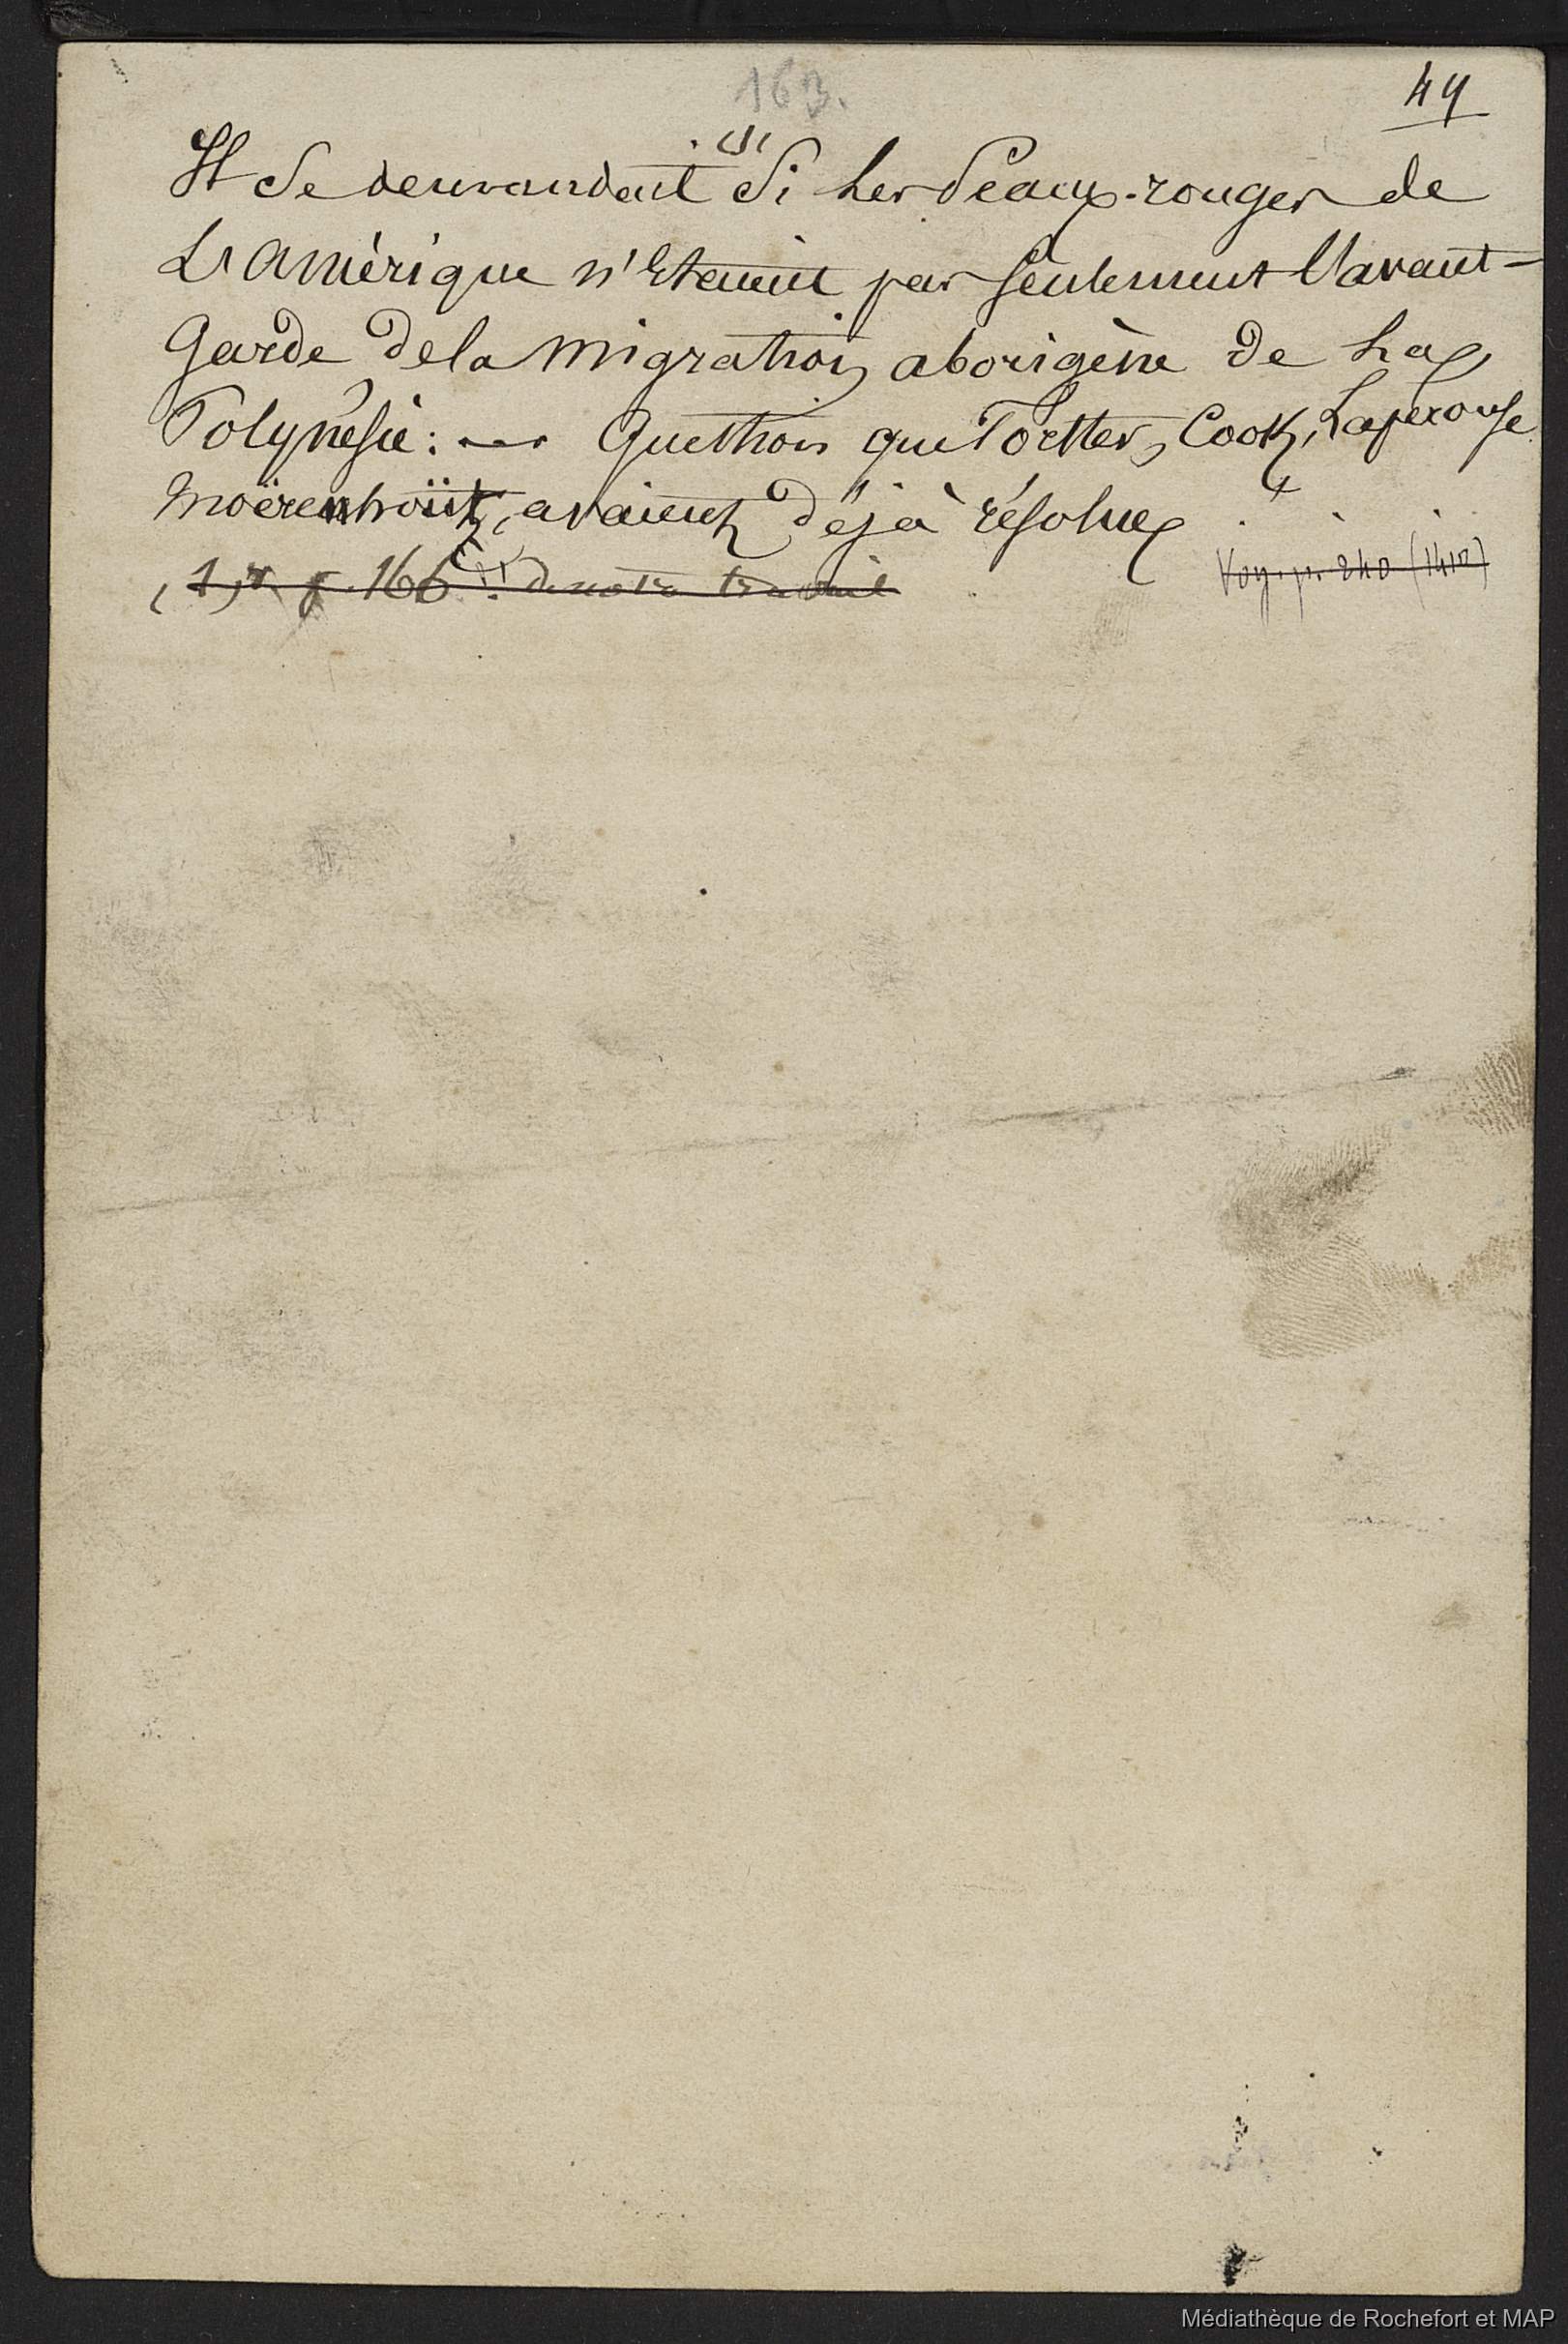 163.
49
Il Se demandait (1) Si Les Peaux-rouges de
L'Amérique n'Etaient pas Seulement l'avant-
Garde de la Migration aborigène de La
Polynésie: — Question que Forster, Cook, Laperouse
Moërenhoüt, avaient déjà résolue
(1) p. 166 de notre travail
Voy. p. 240 (1410)
Médiathèque de Rochefort et MAP